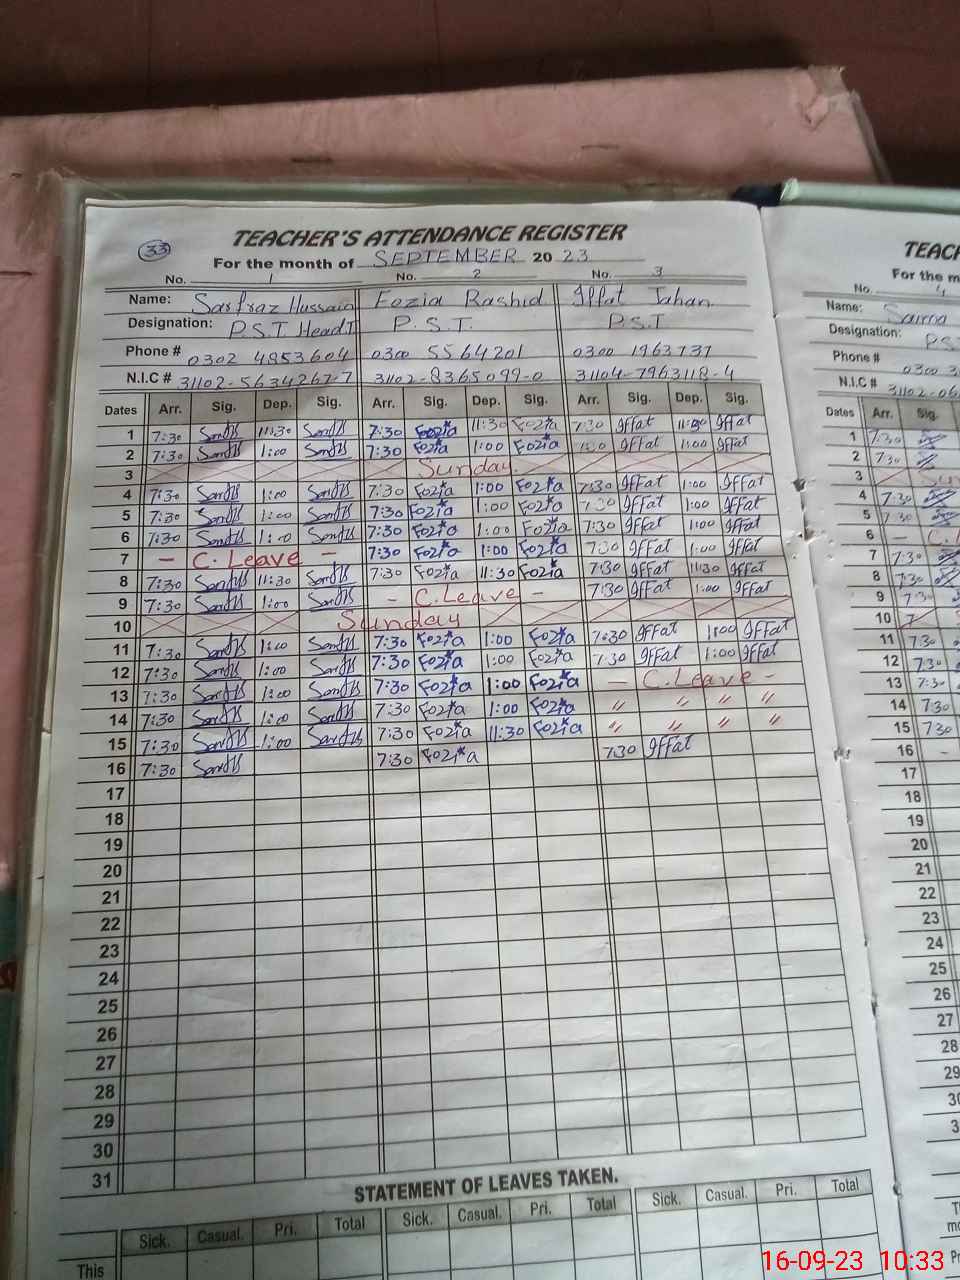 33
TEACHER'S ATTENDANCE REGISTER
For the month of SEPTEMBER 20 23
No. 1 No. 2 No. 3
Name: Sarfraz Hussain Fozia Rashid Iffat Jahan
Designation: P.S.T Head T P.S.T. P.S.T
Phone # 0302 4853604 0300 5564201 0300 1963737
N.I.C # 31102-5634267-7 31102-8365099-0 31104-7963118-4
Dates Arr. Sig. Dep. Sig. Arr. Sig. Dep. Sig. Arr. Sig. Dep. Sig.
1 7:30 11:30 7:30 Fozia 11:30 Fozia 7:30 Iffat 11:30 Iffat
2 7:30 1:00 7:30 Fozia 1:00 Fozia 7:30 Iffat 1:00 Iffat
3 Sunday
4 7:30 1:00 7:30 Fozia 1:00 Fozia 7:30 Iffat 1:00 Iffat
5 7:30 1:00 7:30 Fozia 1:00 Fozia 7:30 Iffat 1:00 Iffat
6 7:30 1:00 7:30 Fozia 1:00 Fozia 7:30 Iffat 1:00 Iffat
7 - C. Leave - 7:30 Fozia 1:00 Fozia 7:30 Iffat 1:00 Iffat
8 7:30 11:30 7:30 Fozia 11:30 Fozia 7:30 Iffat 11:30 Iffat
9 7:30 1:00 - C. Leave - 7:30 Iffat 1:00 Iffat
10 Sunday
11 7:30 1:00 7:30 Fozia 1:00 Fozia 7:30 Iffat 1:00 Iffat
12 7:30 1:00 7:30 Fozia 1:00 Fozia 7:30 Iffat 1:00 Iffat
13 7:30 1:00 7:30 Fozia 1:00 Fozia - C. Leave -
14 7:30 1:00 7:30 Fozia 1:00 Fozia " " " "
15 7:30 1:00 7:30 Fozia 11:30 Fozia " " " "
16 7:30 7:30 Fozia 7:30 Iffat
17
18
19
20
21
22
23
24
25
26
27
28
29
30
31
STATEMENT OF LEAVES TAKEN.
Sick. Casual. Pri. Total Sick. Casual. Pri. Total Sick. Casual. Pri. Total
This
TEACH
For the m
No. 4
Name: Saima
Designation: PS
Phone # 0300 3
N.I.C # 31102-06
Dates Arr. Sig.
1 7:30
2 7:30
3 Sun
4 7:30
5 7:30
6 - C.L
7 7:30
8 7:30
9 7:30
10
11 7:30
12 7:30
13 7:30
14 7:30
15 7:30
16 -
17
18
19
20
21
22
23
24
25
26
27
28
29
30
3
16-09-23 10:33